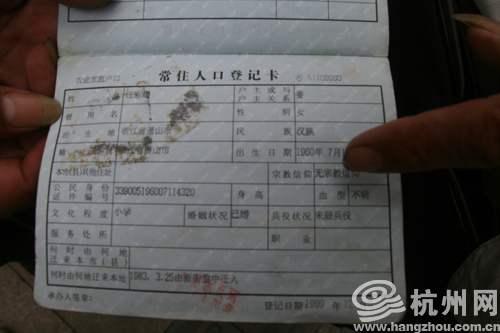 常住人口登记卡
姓 名 户主或与户主关系 妻
曾用名 性别 女
出生地 浙江省萧山市 民族 汉族
籍 出生日期 1960年7月
本市(县)其他住址 宗教信仰 无宗教信仰
公民身份证件编号 339005196007114320 身高 血型 不明
文化程度 小学 婚姻状况 已婚 兵役状况 未服兵役
服务处所 职业
何时由何地迁来本市(县)
何时由何地迁来本址 1983.3.25由 迁入
承办人签章: 登记日期:1999年
杭州网
www.hangzhou.com.cn